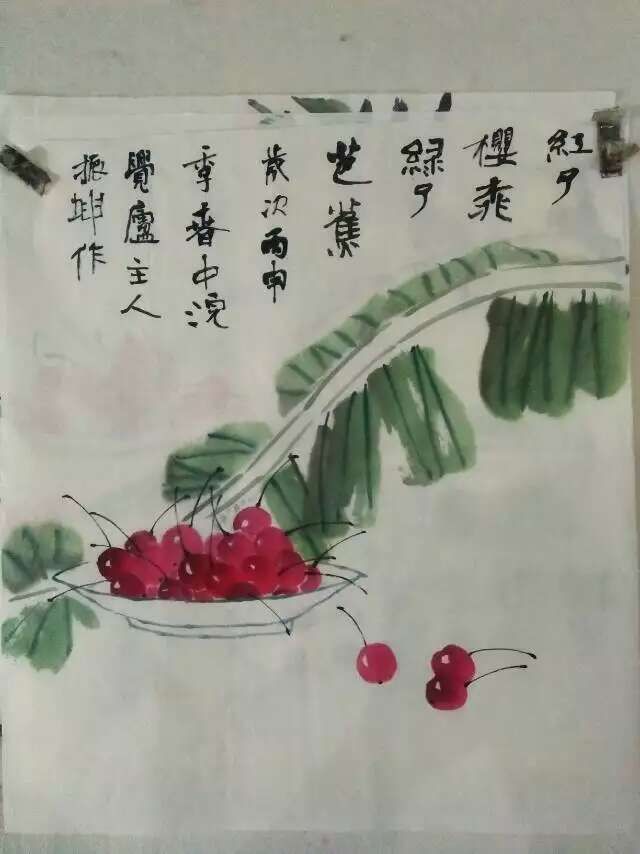 紅了
櫻桃
緑了
芭蕉
歲次丙申
季春中浣
覺盧主人
振坤作